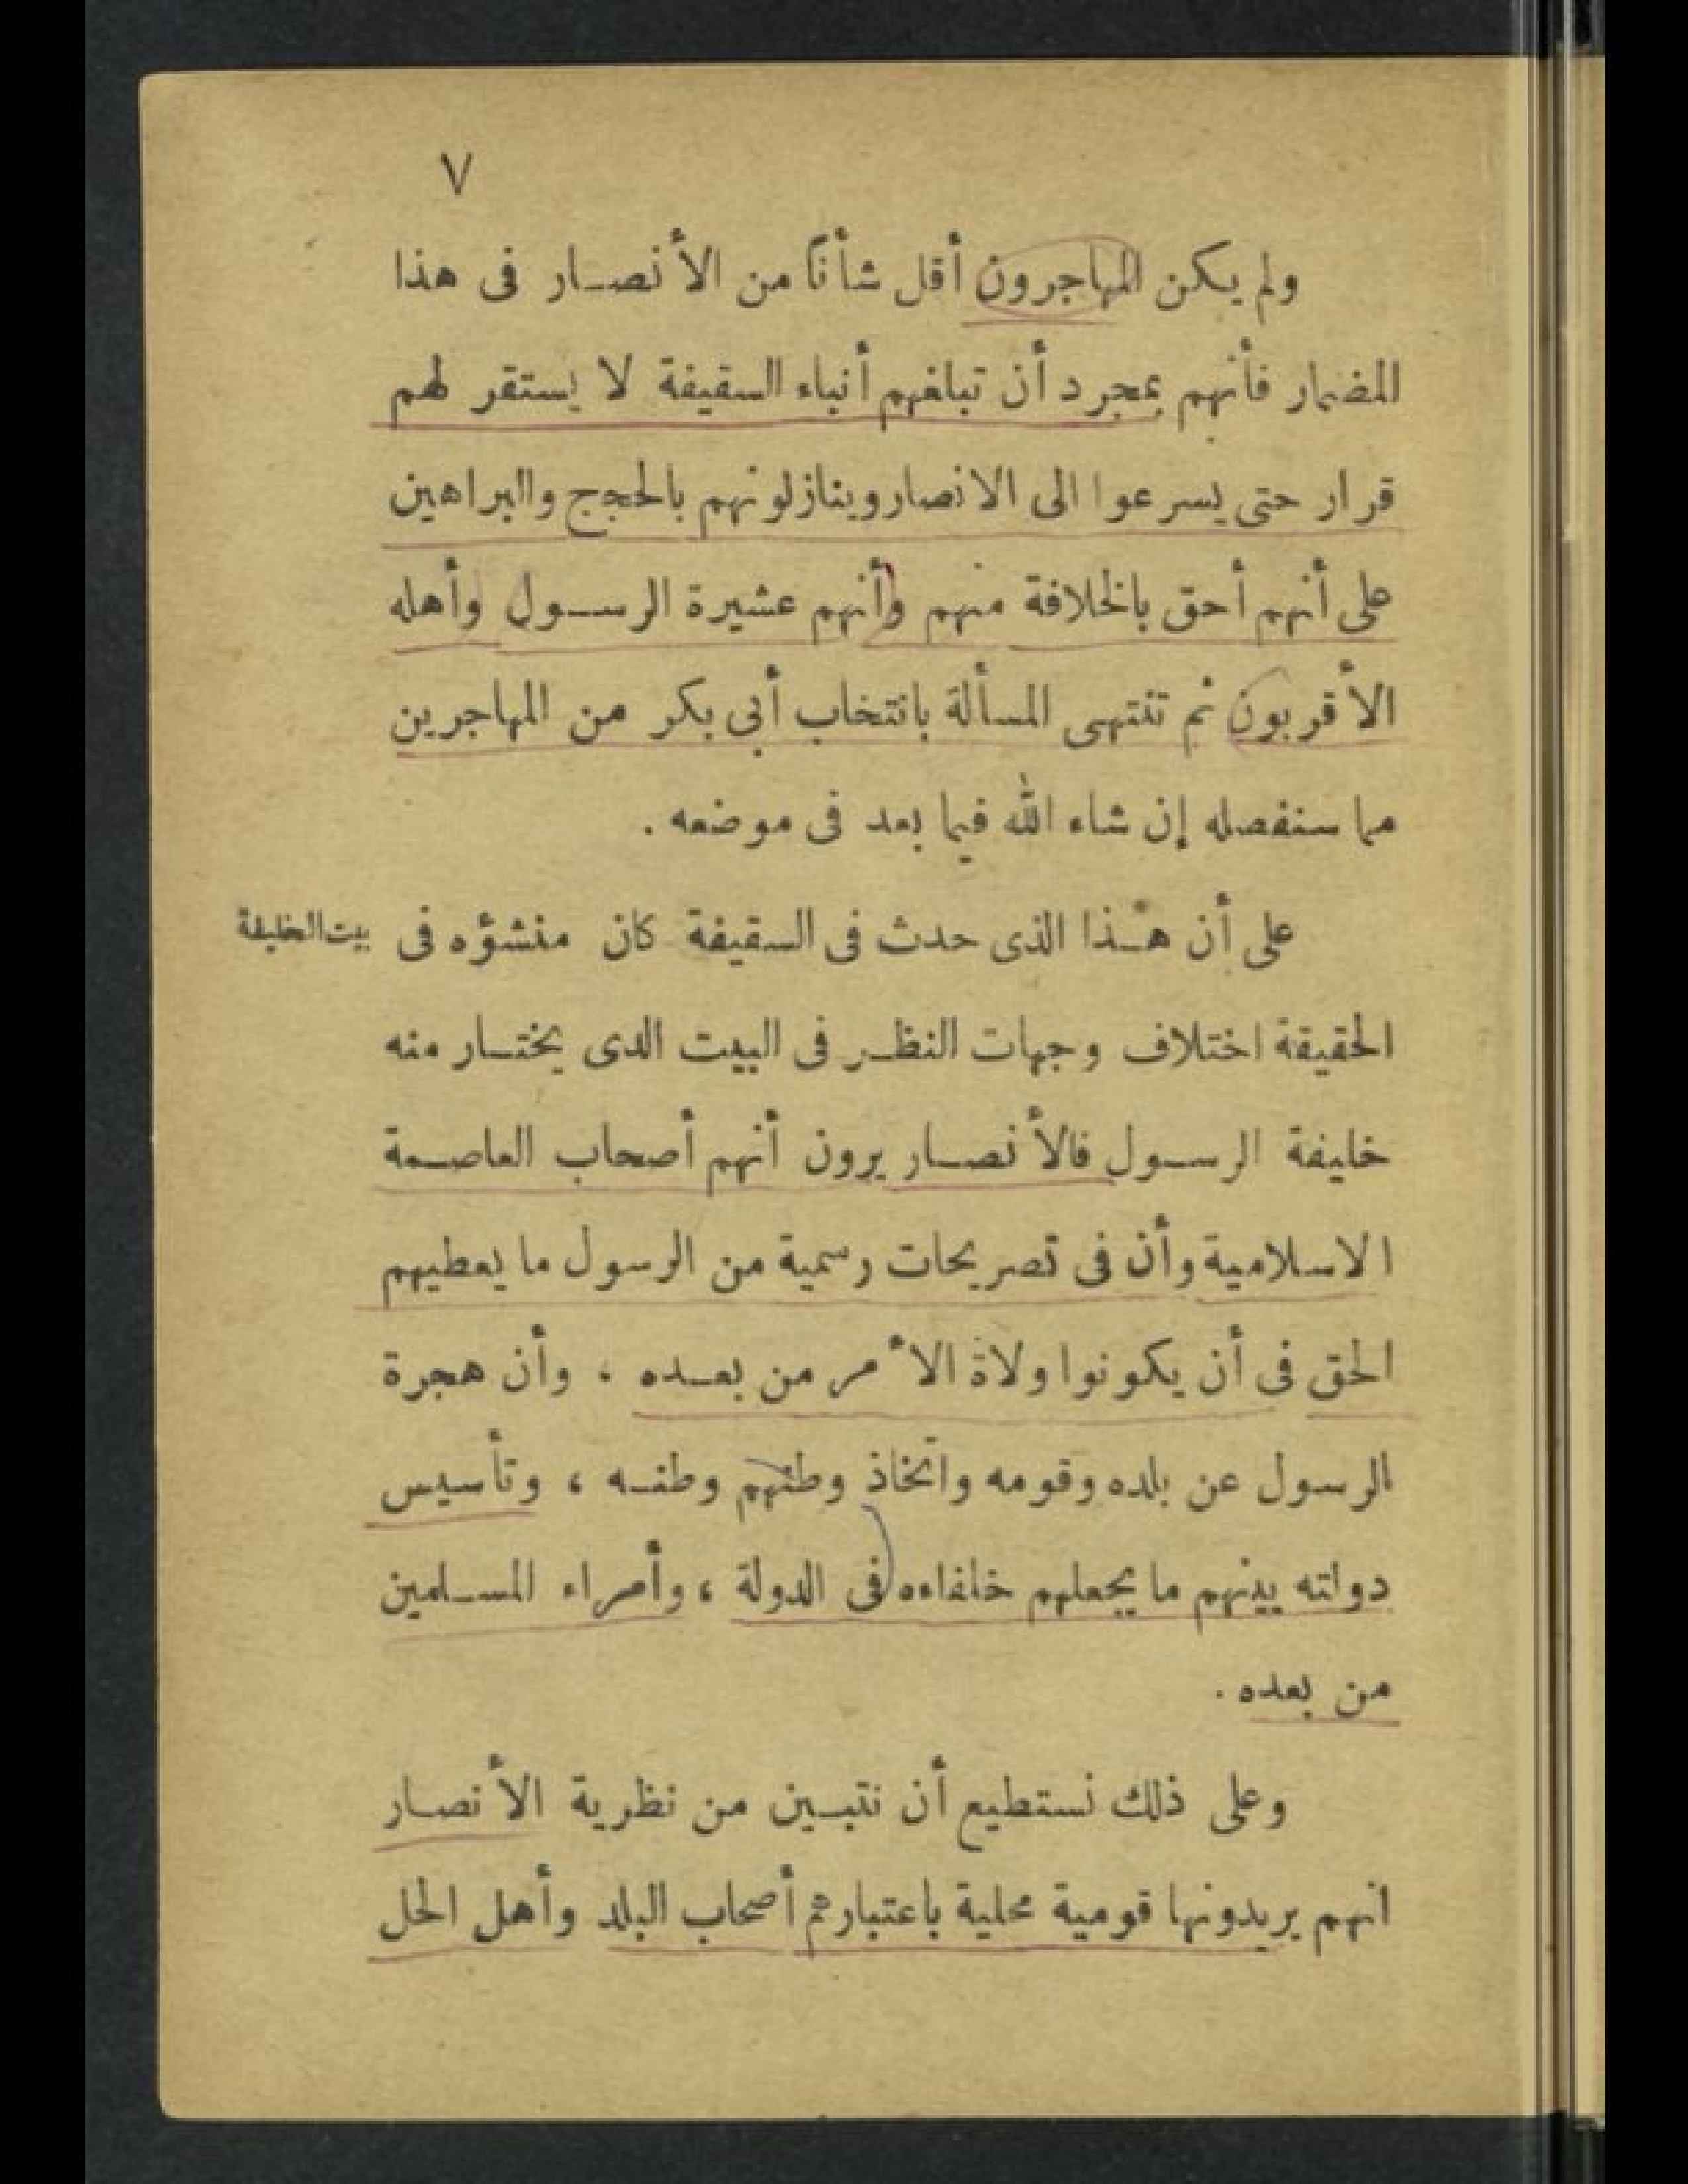 ٧
ولم يكن المهاجرون أقل شأناً من الأنصار فى هذا
المضمار فأنهم بمجرد أن تبلغهم أنباء السقيفة لا يستقر لهم
قرار حتى يسرعوا الى الانصار وينازلونهم بالحجج والبراهين
على أنهم أحق بالخلافة منهم وأنهم عشيرة الرسول وأهله
الأقربون ثم تنتهى المسألة بانتخاب أبى بكر من المهاجرين
مما سنفصله إن شاء الله فيما بعد فى موضعه .
على أن هذا الذى حدث فى السقيفة كان منشؤه فى
بيت الخليفة
الحقيقة اختلاف وجهات النظر فى البيت الذى يختار منه
خليفة الرسول فالأنصار يرون أنهم أصحاب العاصمة
الاسلامية وأن فى تصريحات رسمية من الرسول ما يعطيهم
الحق فى أن يكونوا ولاة الأمر من بعده ، وأن هجرة
الرسول عن بلده وقومه واتخاذ وطنهم وطنه ، وتأسيس
دولته بينهم ما يجعلهم خلفاءه فى الدولة ، وأمراء المسلمين
من بعده .
وعلى ذلك نستطيع أن نتبين من نظرية الأنصار
انهم يريدونها قومية محلية باعتبارهم أصحاب البلد وأهل الحل